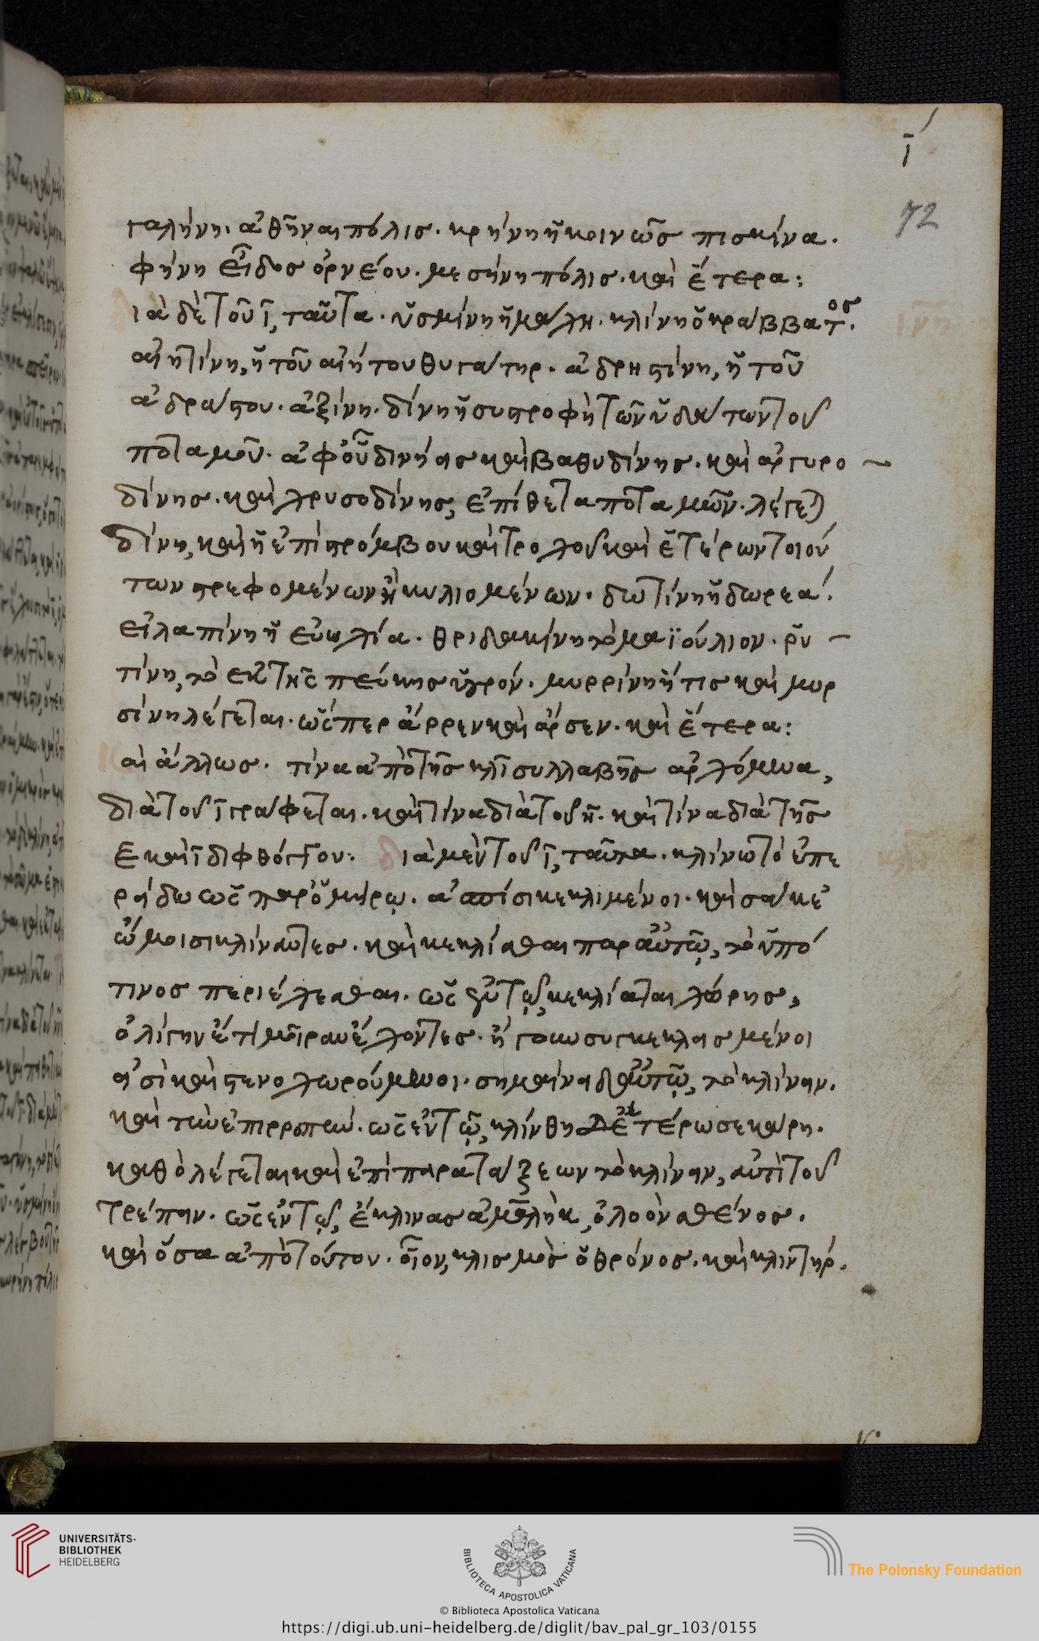 ί
72
γαλήνη. ἀθῆναι πόλις. κρήνη ἡ κοινῶς πισκίνα.
φήνη εἶδος ὀρνέου. μεσήνη πόλις. καὶ ἕτερα:
ιὰ δὲ τοῦ ῑ, ταῦτα. ὑσμίνη ἡ μάχη. κλίνη ὁ κράββατος.
ινη
αἰητίνη, ἡ τοῦ αἰήτου θυγάτηρ. ἀδρηστίνη, ἡ τοῦ
ἀδράστου. ἀξίνη. δίνη ἡ συστροφὴ τῶν ὑδάτων τοῦ
ποταμοῦ. ἀφ' οὗ δινήεις καὶ βαθυδίνης. καὶ ἀργυρο
δίνης. καὶ χρυσοδίνης, ἐπίθετα ποταμῶν. λέγεται
δίνη, καὶ ἡ ἐπὶ στρόμβου καὶ τροχοῦ καὶ ἑτέρων τοιού
των στρεφομένων ἢ κυλιομένων. δωτίνη ἡ δωρεά.
εἰλαπίνη ἡ εὐωχία. θριδακίνη τὸ μαϊούλιον. ῥυ
τίνη, τὸ ἐκ τῆς πεύκης ὑγρόν. μυρρίνη ἥτις καὶ μυρ
σίνη λέγεται. ὥσπερ ἄρρεν καὶ ἄρσεν. καὶ ἕτερα:
αὶ ἄλλως. τίνα ἀπὸ τῆς κλι συλλαβῆς ἀρχόμενα,
διὰ τοῦ ῑ γράφεται. καὶ τίνα διὰ τοῦ η. καὶ τίνα διὰ τῆς
ε καὶ ῑ διφθόγγου: διὰ μὲν τοῦ ῑ, ταῦτα. κλίνω τὸ ἐπε
κλι
ρείδω ὡς παρ' ὁμήρῳ. ἀσπίσι κεκλιμένοι. καὶ σάκε'
ὤμοισι κλίναντες. καὶ κεκλίσθαι παρ' αὐτῷ, τὸ ὑπό
τινος περιέχεσθαι. ὡς ἐν τῷ, κεκλίαται χώρης,
ὀλίγην ἔτι μοῖραν ἔχοντες. ἤγουν συγκεκλεισμένοι
εἰσὶ καὶ στενοχωρούμενοι. σημαίνει δ' αὐτῷ, τὸ κλίνειν.
καὶ τὴν ἐπιρροπήν. ὡς ἐν τῷ, κλίνθη δ' ἑτέρωσε κάρη.
καθὸ λέγεται καὶ ἐπὶ παρατάξεων τὸ κλίνειν, ἀντὶ τοῦ
τρέπειν. ὡς ἐν τῷ, ἔκλινας ἀμαλὴκ, ὀλοὸν σθένος.
καὶ ὅσα ἀπὸ τούτου. οἷον, κλισμὸς ὁ θρόνος. καὶ κλιντήρ.
UNIVERSITÄTS-
BIBLIOTHEK
HEIDELBERG
BIBLIOTECA APOSTOLICA VATICANA
The Polonsky Foundation
© Biblioteca Apostolica Vaticana
https://digi.ub.uni-heidelberg.de/diglit/bav_pal_gr_103/0155